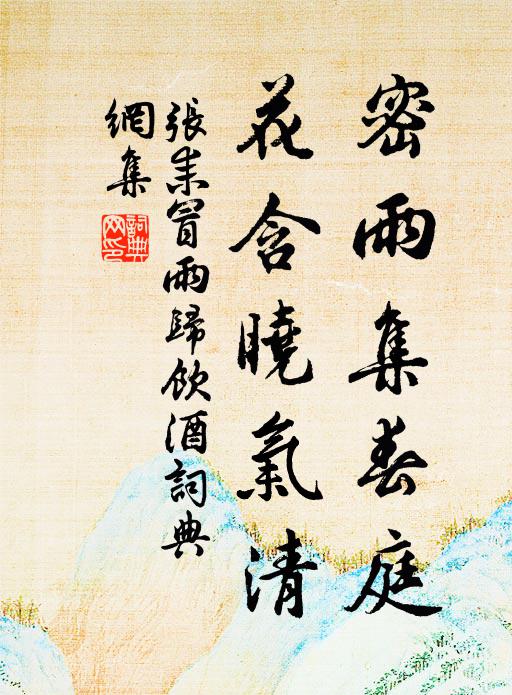 密雨集春庭
花含曉氣清
張耒冒雨歸飲酒詞典
網集
詞典
網印